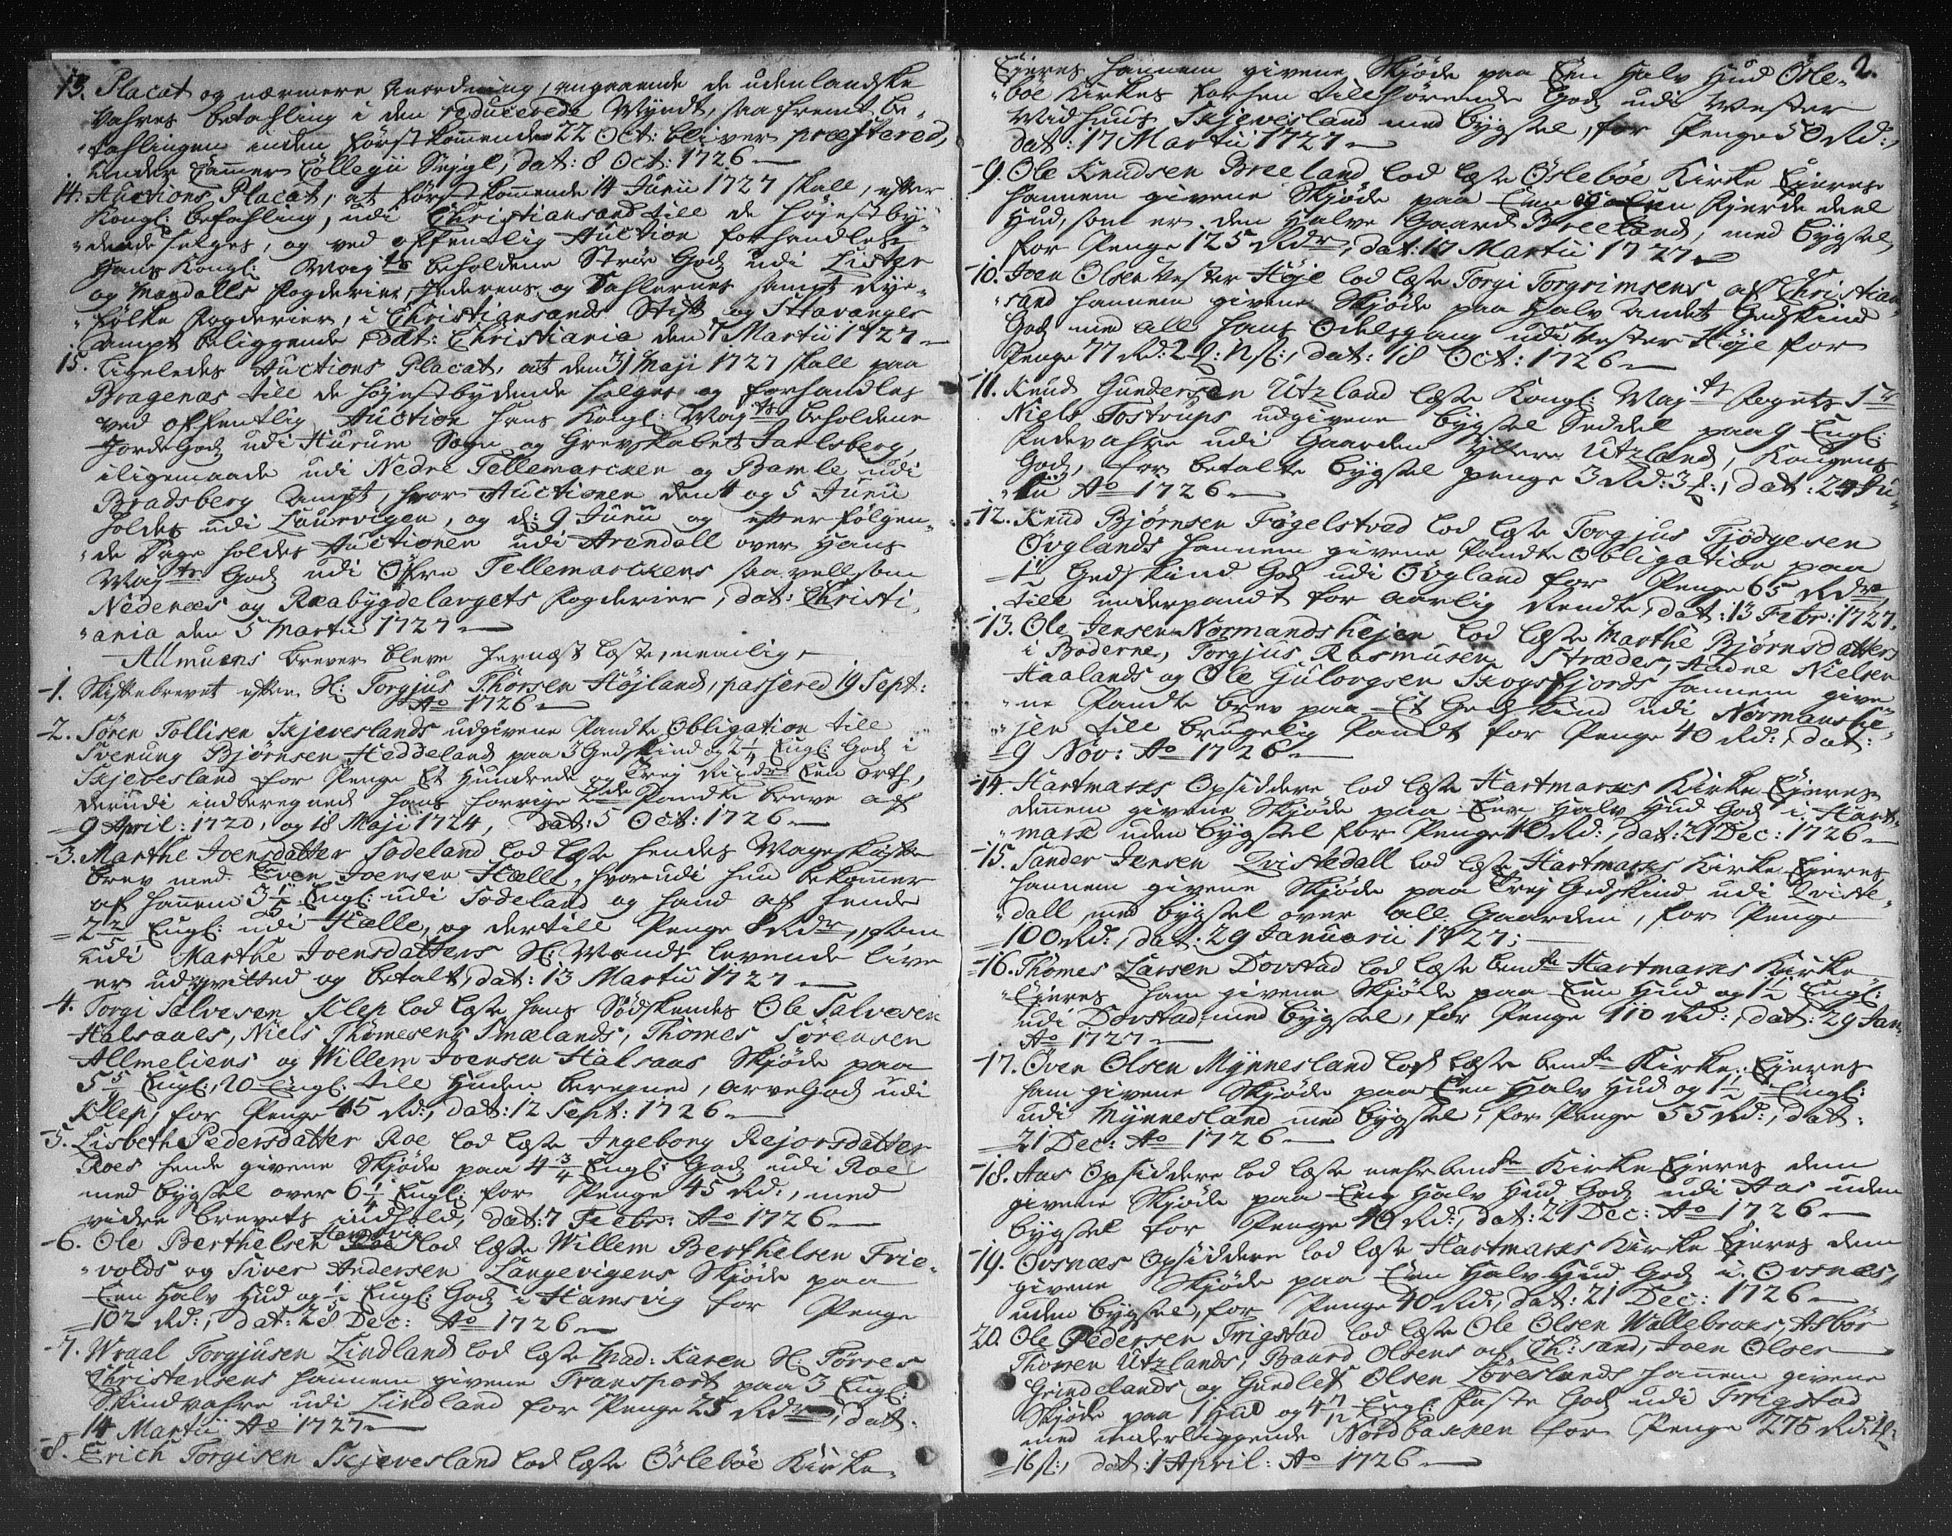 13. Placat og nærmere Anordning, angaaende de udenlandske
Vahres betahling i den reducerede Mynt, saa fremt be-
tahlingen inden førstkommende 22 Oct: bliver præstered,
under Cammer Collegii Sejgl, dat: 8 Oct: 1726
14. Auctions Placat, at førstkommende 14 Junii 1727 skall, efter
Kongl: befahling, udi Christiansand till de højestby-
dende selges, og ved offentlig Auction forhandles
Hans Kongl: Mayts beholdene Strøe God udi Lister
og Mandalls fogderier, Jederens og Dahlernes sampt Rye-
fölke fogderier, i Christiansands Stift og Stavanger
Ampt beliggende, dat: Christiania den 7 Martii 1727
15. Ligeledes Auctions Placat, at den 31 Maji 1727 skall paa
Bragenæs till de højestbydende selges og forhandles
ved offentlig Auction hans Kongl: Mayts beholdene
Jorde God udi Hurum Sogn og Grevskabet Jarlsberg,
iligemaade udi Nedre Tellemarcken og Bamle udi
Bradsberg Ampt, hvor Auctionen den 4 og 5 Junii
holdes udi Laurvigen, og d: 9 Junii og efterfølgen-
de Dage holdes Auctionen udi Arendall over Hans
Mayts God udi Øfre Tellemarckens saavellsom
Nedenæs og Raabygdelaugets fogderier, dat: Christi-
ania den 5 Martii 1727
Allmuens brever bleve hernæst læste, nemlig
1. Skiftebrevet efter Sl: Torgjus Thorsen Højland, passered 19 Sept:
Ao 1726
2. Søren Tollisen Skjeveslands udgivene Pandte Obligation till
Svenung Bjørnsen Heddeland paa 3 Gedskind og 2 1/4 Engl: God i
Skjevesland for Penge Et Hundrede og Trej Rixdr Een orth,
derudi indberegned hans forrige 2de Pandte breve af
9 April: 1720, og 18 Maji 1724, dat: 5 Oct: 1726
3. Marthe Joensdatter Sodeland lod læse hendes Mageskifte
brev med Even Joensen Hælle, hvorudi hun bekommer
af hannem 3 1/5 Engl: udi Sodeland og hand af hende
2 2/5 Engl: udi Hælle, og dertill Penge 8 Rdr, som
udi Marthe Joensdatters Sl: Mands levende live
er udqvitted og betalt, dat: 13 Martii 1727
4. Torgi Salvesen Klep lod læse hans Södskendes Ole Salvesen
Halsaaes, Niels Thomesens Smælands, Thomes Sörensen
Allmeliens og Willem Joensen Halsaas Skjøde paa
5 5/ Engl:, 20 Engl: till Huden beregned, arve God udi
Klep, for Penge 45 Rd:, dat: 12 Sept: 1726
5. Lisbeth Pedersdatter Roe lod læse Ingeborg Rejorsdatter
Roes hende givene Skjøde paa 4 3/4 Engl: God udi Roe
med bygsel over 6 1/4 Engl: for Penge 45 Rd:, med
videre brevets indhold, dat: 7 Febr: Ao 1726
6. Ole Berthelsen Hamsvig lod læse Willem Berthelsen Frie-
volds og Siver Andersen Langevigens Skjøde paa
Een Halv Hud og 1/3 Engl: God i Hamsvig for Penge
102 Rd:, dat: 28 Dec: Ao 1726
7. Wraal Torgjusen Lindland lod læse Mad: Karen Sl: Törres
Christensens hannem givene Transport paa 3 Engl:
Skindvahre udi Lindland for Penge 25 Rdr, dat:
14 Martii Ao 1727
8. Erich Torgisen Skjevesland lod læse Ösleböe Kirke-
2.
Ejeres hannem givene Skjøde paa Een Halv Hud Ösle-
böe Kirkes forhen tilhørende God udi Vester
Midhuus Skjevesland med bygsel, for Penge 50 Rd:,
dat: 17 Martii 1727
9. Ole Knudsen Breeland lod læse Öslebøe Kirke Ejeres
hannem givene Skjøde paa Een og Een fjerde deel
Hud, som er den Halve Gaard Breeland, med bygsel,
for Penge 125 Rdr, dat: 17 Martii 1727
10. Joen Olsen Vester Høje lod læse Torgi Torgrimsens af Christian-
sand hannem givene Skjøde paa Halv Andet Gedskind
God med all hans Odelsgang udi Vester Høje for
Penge 77 Rd: 2 , dat: 18 Oct: 1726
11. Knud Gundersen Utzland læste Kongl: Mayts fogets Sr
Niels Tostrups udgivene bygsel Seddel paa 9 Engl:
Ledevahre udi Gaarden Yttere Utzland, Kongens
God, for betalte bygsel penge 3 Rd: 3 , dat: 24 Ju-
lii Ao 1726
12. Knud Bjørnsen Føgelstvad lod læse Torgjus Tjödgesen
Övglands hannem givene Pandte Obligation paa
1 Gedskind God udi Övgland for Penge 65 Rdr,
till underpandt for aarlig Rendte, dat: 13 Febr: 1727.
13. Ole Jensen Normandshejen lod læse Marthe Bjørnsdatters
i Boderne, Torgjus Rasmusen Strædes, Aadne Nielsen
Haalands og Ole Gulovgsen Skogsfjords hannem give-
ne Pandte brev paa Et Gedskind udi Normanshe-
jen till brugelig Pandt for Penge 40 Rd:, dat:
9 Nov: Ao 1726
14. Hartmarks Opsiddere lod læse Hartmarks Kirke Ejeres
dennem givene Skjøde paa Een Halv Hud God i Hart-
mark uden bygsel for Penge 40 Rd:, dat: 21 Dec: 1726
15. Sander Jensen Qvistedall lod læse Hartmarks Kirke Ejeres
hannem givene Skjøde paa Trej Gedskind udi Qviste-
dall med bygsel over all Gaarden, for Penge
100 Rd:, dat: 29 Januarii 1727;
16. Thomes Larsen Dovstad lod læse bente Hartmarks Kirke
Ejeres ham givene Skjøde paa Een Hud og 1 1/2 Engl:
udi Dovstad, med bygsel, for Penge 110 Rd:, dat: 29 Jan:
Ao 1727
17. Öven Olsen Mynnesland lod læse bente Kirke Ejeres
ham givene Skjøde paa Een Halv Hud og 1 1/2 Engl:
udi Mynnesland med bygsel, for Penge 55 Rd:, dat:
21 Dec: Ao 1726
18. Aas Opsiddere lod læse mehrbente Kirke Ejeres dem
givene Skjøde paa Een Halv Hud God udi Aas uden
bygsel for Penge 40 Rd:, dat: 21 Dec: Ao 1726
19. Ovsnæs Opsiddere lod læse Hartmarks Kirke Ejeres dem
givene Skjøde paa Een Halv Hud God i Ovsnæs,
uden bygsel, for Penge 40 Rd:, dat: 21 Dec: 1726
20. Ole Pedersen Trigstad lod læse Ole Olsen Wallebroes, Asbör
Thorsen Utzlands, Baard Olsens af Ch:sand, Joen Olsen
Grindelands og Gundles Olsen Löveslands hannem givene
Skjøde paa 1 Hud og 4 7/12 Engl: faste God udi Trigstad
med underliggende Nordbakken for Penge 275 Rd:
16 ß:, dat: 1 April: Ao 1726